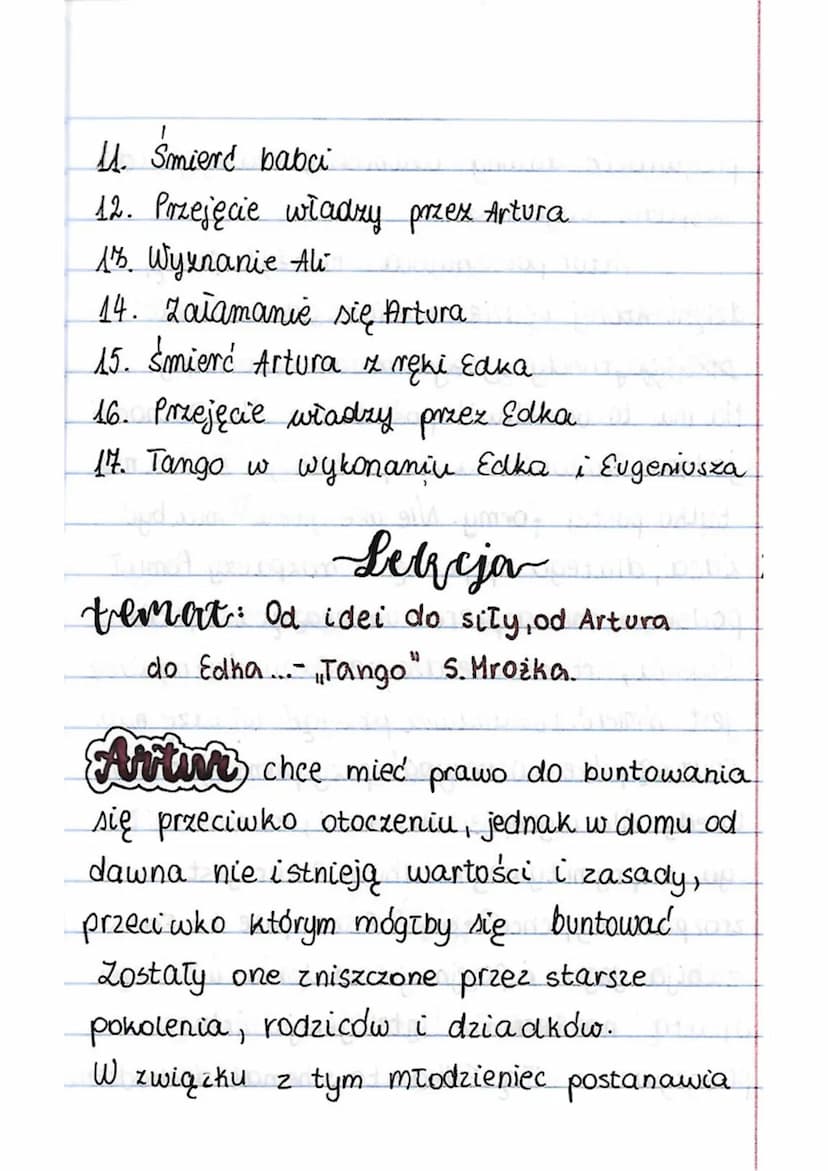 11. Śmierć babci
12. Przejęcie władzy przez Artura
13. Wyznanie Ali
14. Załamanie się Artura
15. Śmierć Artura z ręki Edka
16. Przejęcie władzy przez Edka
17. Tango w wykonaniu Edka i Eugeniusza
Lekcja
temat: Od idei do siły, od Artura
do Edka...- „Tango" S. Mrożka.
Artur chce mieć prawo do buntowania
się przeciwko otoczeniu, jednak w domu od
dawna nie istnieją wartości i zasady,
przeciwko którym mógłby się buntować
Zostały one zniszczone przez starsze
pokolenia, rodziców i dziadków.
W związku z tym młodzieniec postanawia